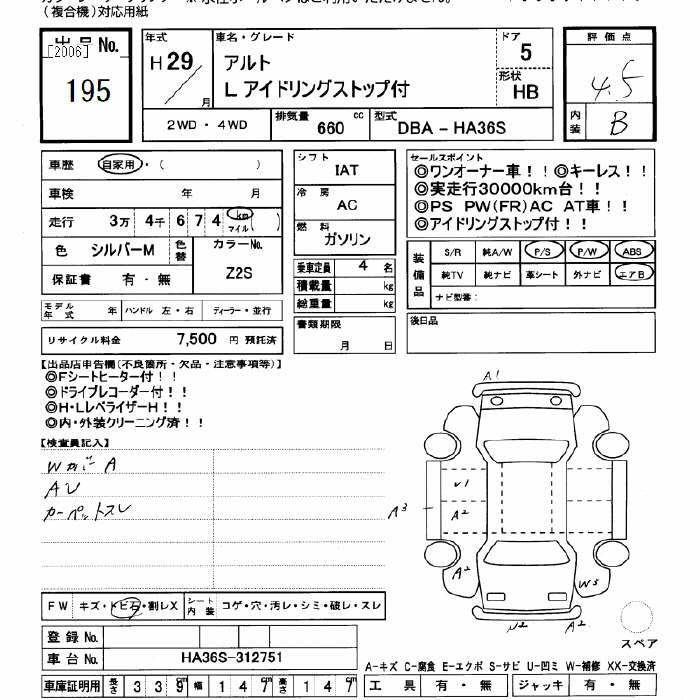 (複合機)対応用紙
出品No.
[2006]
195
年式
H29
月
車名・グレード
アルト
L アイドリングストップ付
ドア
5
形状
HB
2WD ・ 4WD
排気量
660 cc
型式
DBA － HA36S
評価点
4.5
内装
B
車歴 自家用・( )
車検 年 月
走行 3万 4千 6 7 4 km マイル ( )
色 シルバーM 色替
カラーNo.
Z2S
保証書 有 ・ 無
シフト
IAT
冷房
AC
燃料
ガソリン
乗車定員 4 名
積載量 kg
総重量 kg
セールスポイント
◎ワンオーナー車！！◎キーレス！！
◎実走行30000km台！！
◎PS PW(FR)AC AT車！！
◎アイドリングストップ付！！
装備品
S/R 純A/W P/S P/W ABS
純TV 純ナビ 革シート 外ナビ エアB
ナビ型番：
モデル年式 年 ハンドル 左・右 ディーラー・並行
リサイクル料金 7,500 円 預託済
書類期限
月 日
後日品
【出品店申告欄(不良箇所・欠品・注意事項等)】
◎Fシートヒーター付！！
◎ドライブレコーダー付！！
◎H・LレベライザーH！！
◎内・外装クリーニング済！！
【検査員記入】
AU
カーペットスレ
A1
U1
A2
A3
A2
W3
U2
A2
スペア
FW キズ・トビ石・割レX
シート内装 コゲ・穴・汚レ・シミ・破レ・スレ
登録No.
車台No. HA36S-312751
車庫証明用 長さ 3 3 9 cm 幅 1 4 7 cm 高さ 1 4 7 cm
A－キズ C－腐食 E－エクボ S－サビ U－凹ミ W－補修 XX－交換済
工具 有 ・ 無 ジャッキ 有 ・ 無